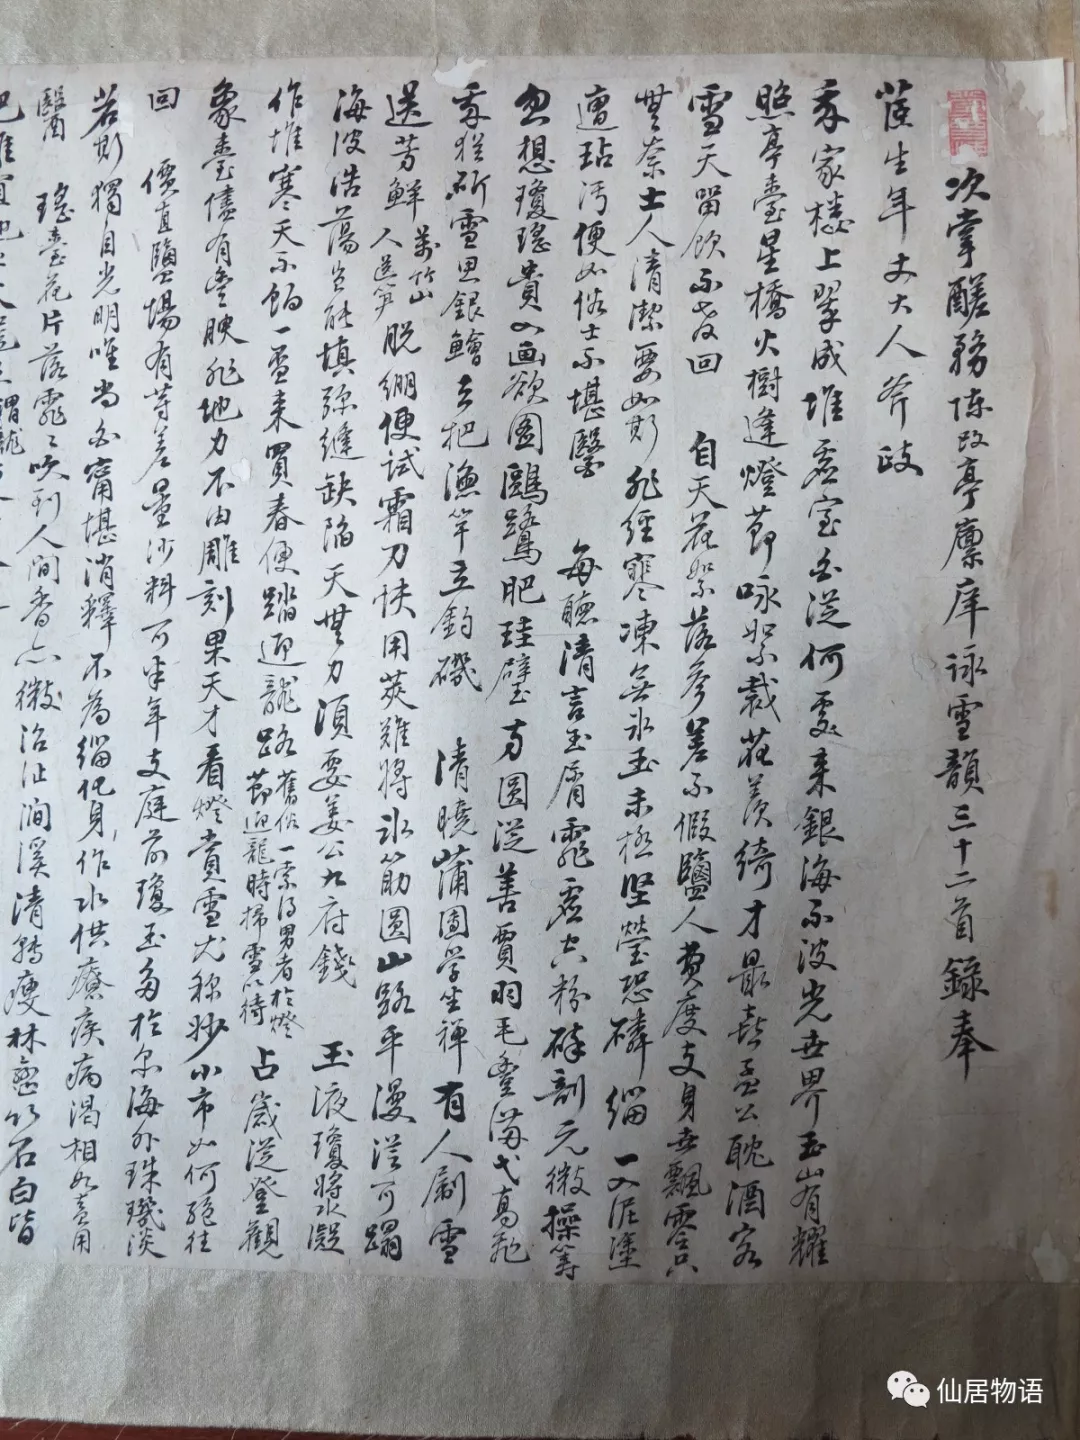 次掌醝務陈政亭廪庠詠雪韻三十二首錄奉
生年丈大人斧政
家楼上翠成堆虚室白從何處来銀海不波光世界玉山有耀
照亭臺星橋火樹逢燈節咏絮裁花羡綺才最喜孟公耽酒客
雪天留飲不放回 自天花絮落参差不假鹽人費度支身世飄零只
無奈士人清潔要如斯非經寒凍無冰玉未極坚瑩恐磷緇一入泥塗
遭玷污便如俗士不堪醫 每聽清言玉屑霏虚空粉碎剖元微操筹
忽想瓊瑤貴入画欲圖鷗鷺肥珪璧方圆從善賈羽毛豐满弋高飛
犹斫雪思銀鱠去把漁竿立釣磯 清曉蒲團学坐禅有人斸雪
送芳鮮 萬竹山人送笋 脱綳便试霜刀快用筴難將冰筋圓山路平漫從可蹋
海波浩蕩岂能填弥縫缺陷天無力须要姜公九府錢 玉液瓊漿水凝
作堆寒天不飭一盃来買春便踏迎龍路 舊俗一索得男者於燈節迎龍時掃雪以待 占歲從登觀
象臺儘有豐腴非地力不由雕刻果天才看燈賞雪尤称妙小市如何絕往
回 價直鹽場有等差量沙料可半年支庭前瓊玉多於尔海外珠璣淡
若斯獨自光明唯尚白甯堪消釋不為緇化身作水供療疾病渴相如喜用
醫 瑤臺花片落霏霏吹到人間香亦微沼沚澗溪清鶴瘦林巒竹石白皆
仙居物语